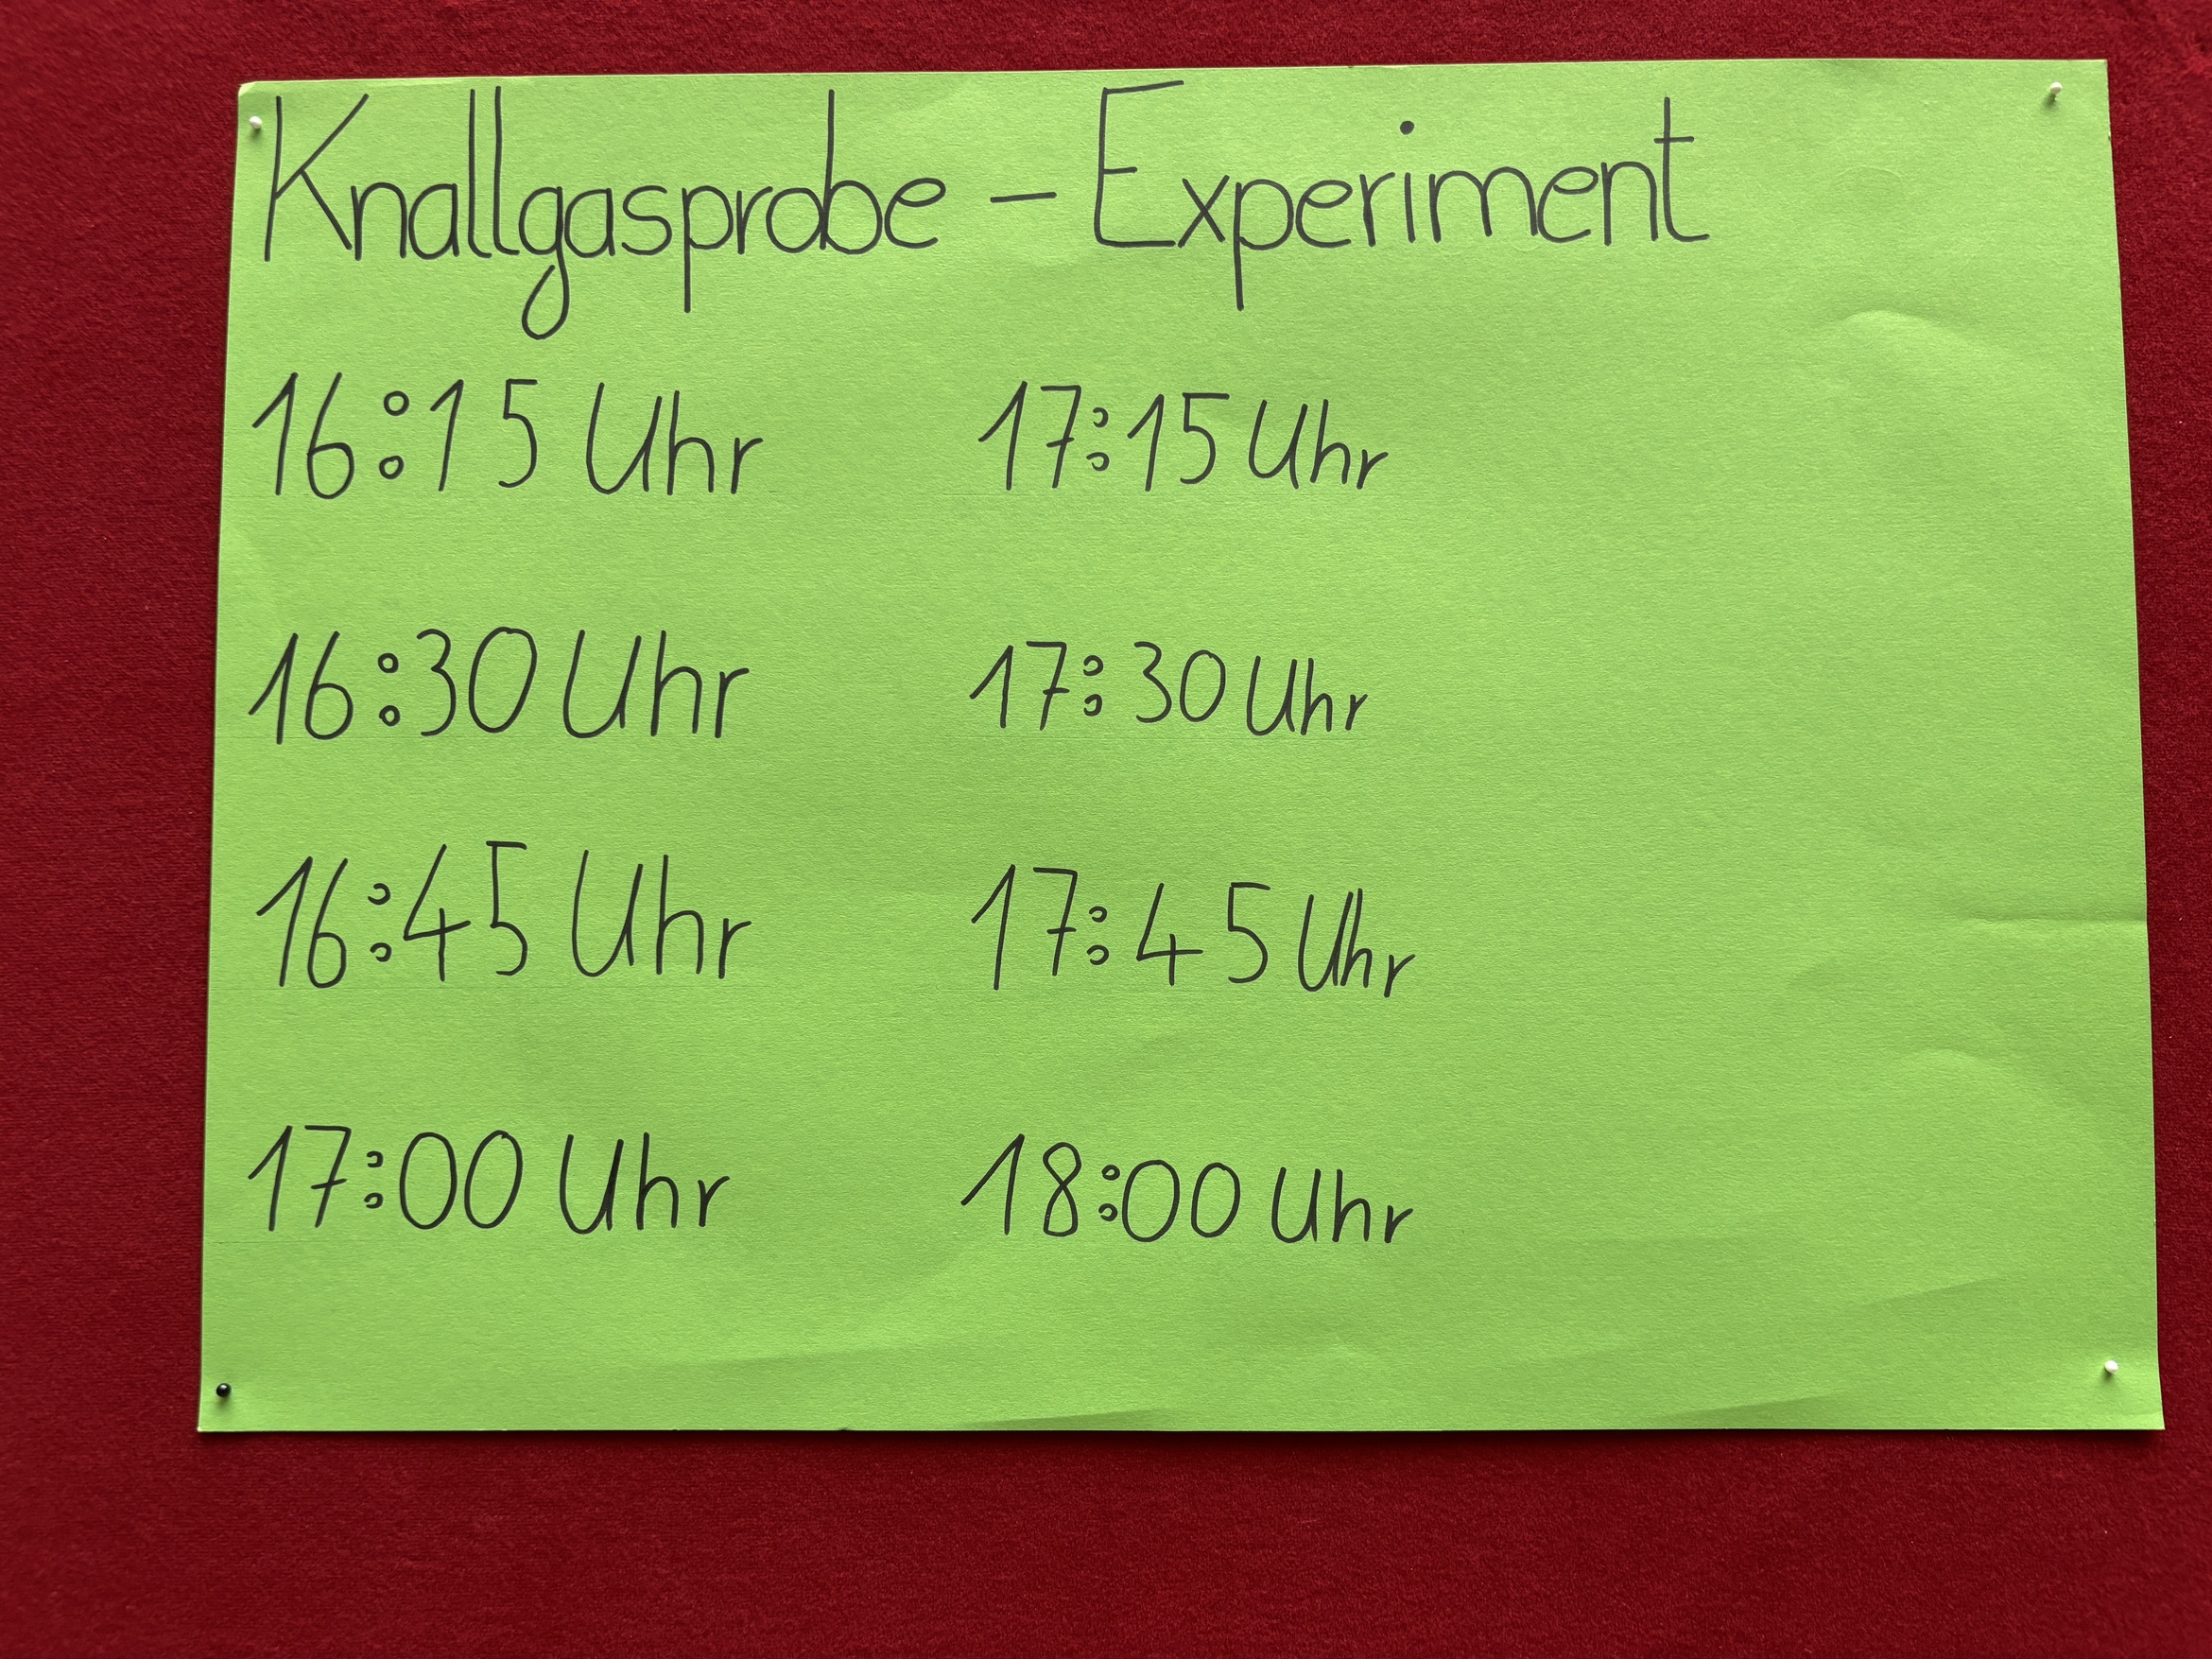 Knallgasprobe – Experiment
16:15 Uhr
16:30 Uhr
16:45 Uhr
17:00 Uhr
17:15 Uhr
17:30 Uhr
17:45 Uhr
18:00 Uhr